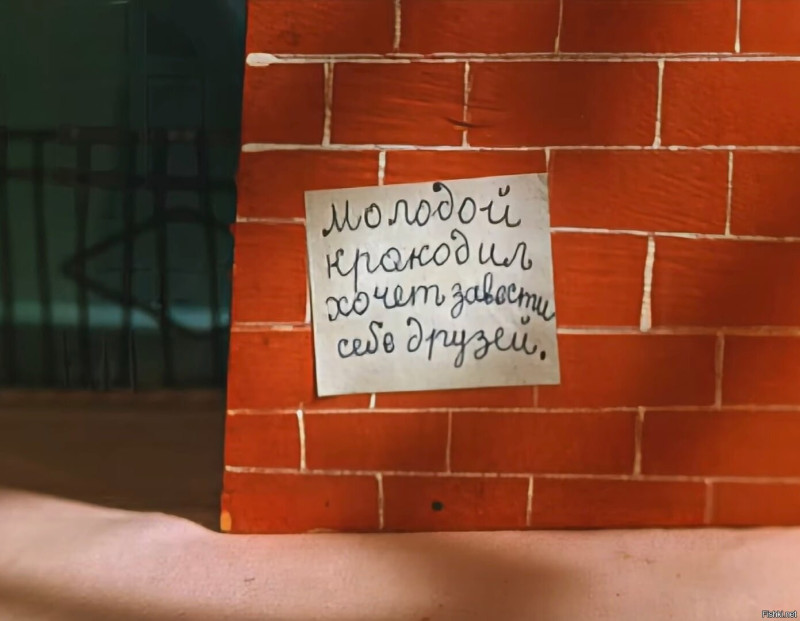 Молодой
крокодил
хочет завести
себе друзей.
Fishki.net